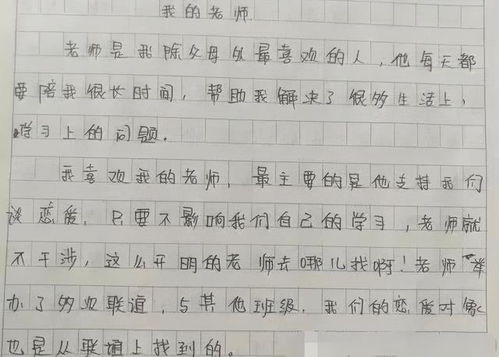 我的老师
老师是我除父母外最喜欢的人,他每天都
要陪我很长时间,帮助我解决了很多生活上,
学习上的问题.
我喜欢我的老师,最主要的是他支持我们
谈恋爱,只要不影响我们自己的学习,老师就
不干涉,这么开明的老师去哪儿找啊!老师举
办了多次联谊,与其他班级.我们的恋爱对象
也是从联谊上找到的。